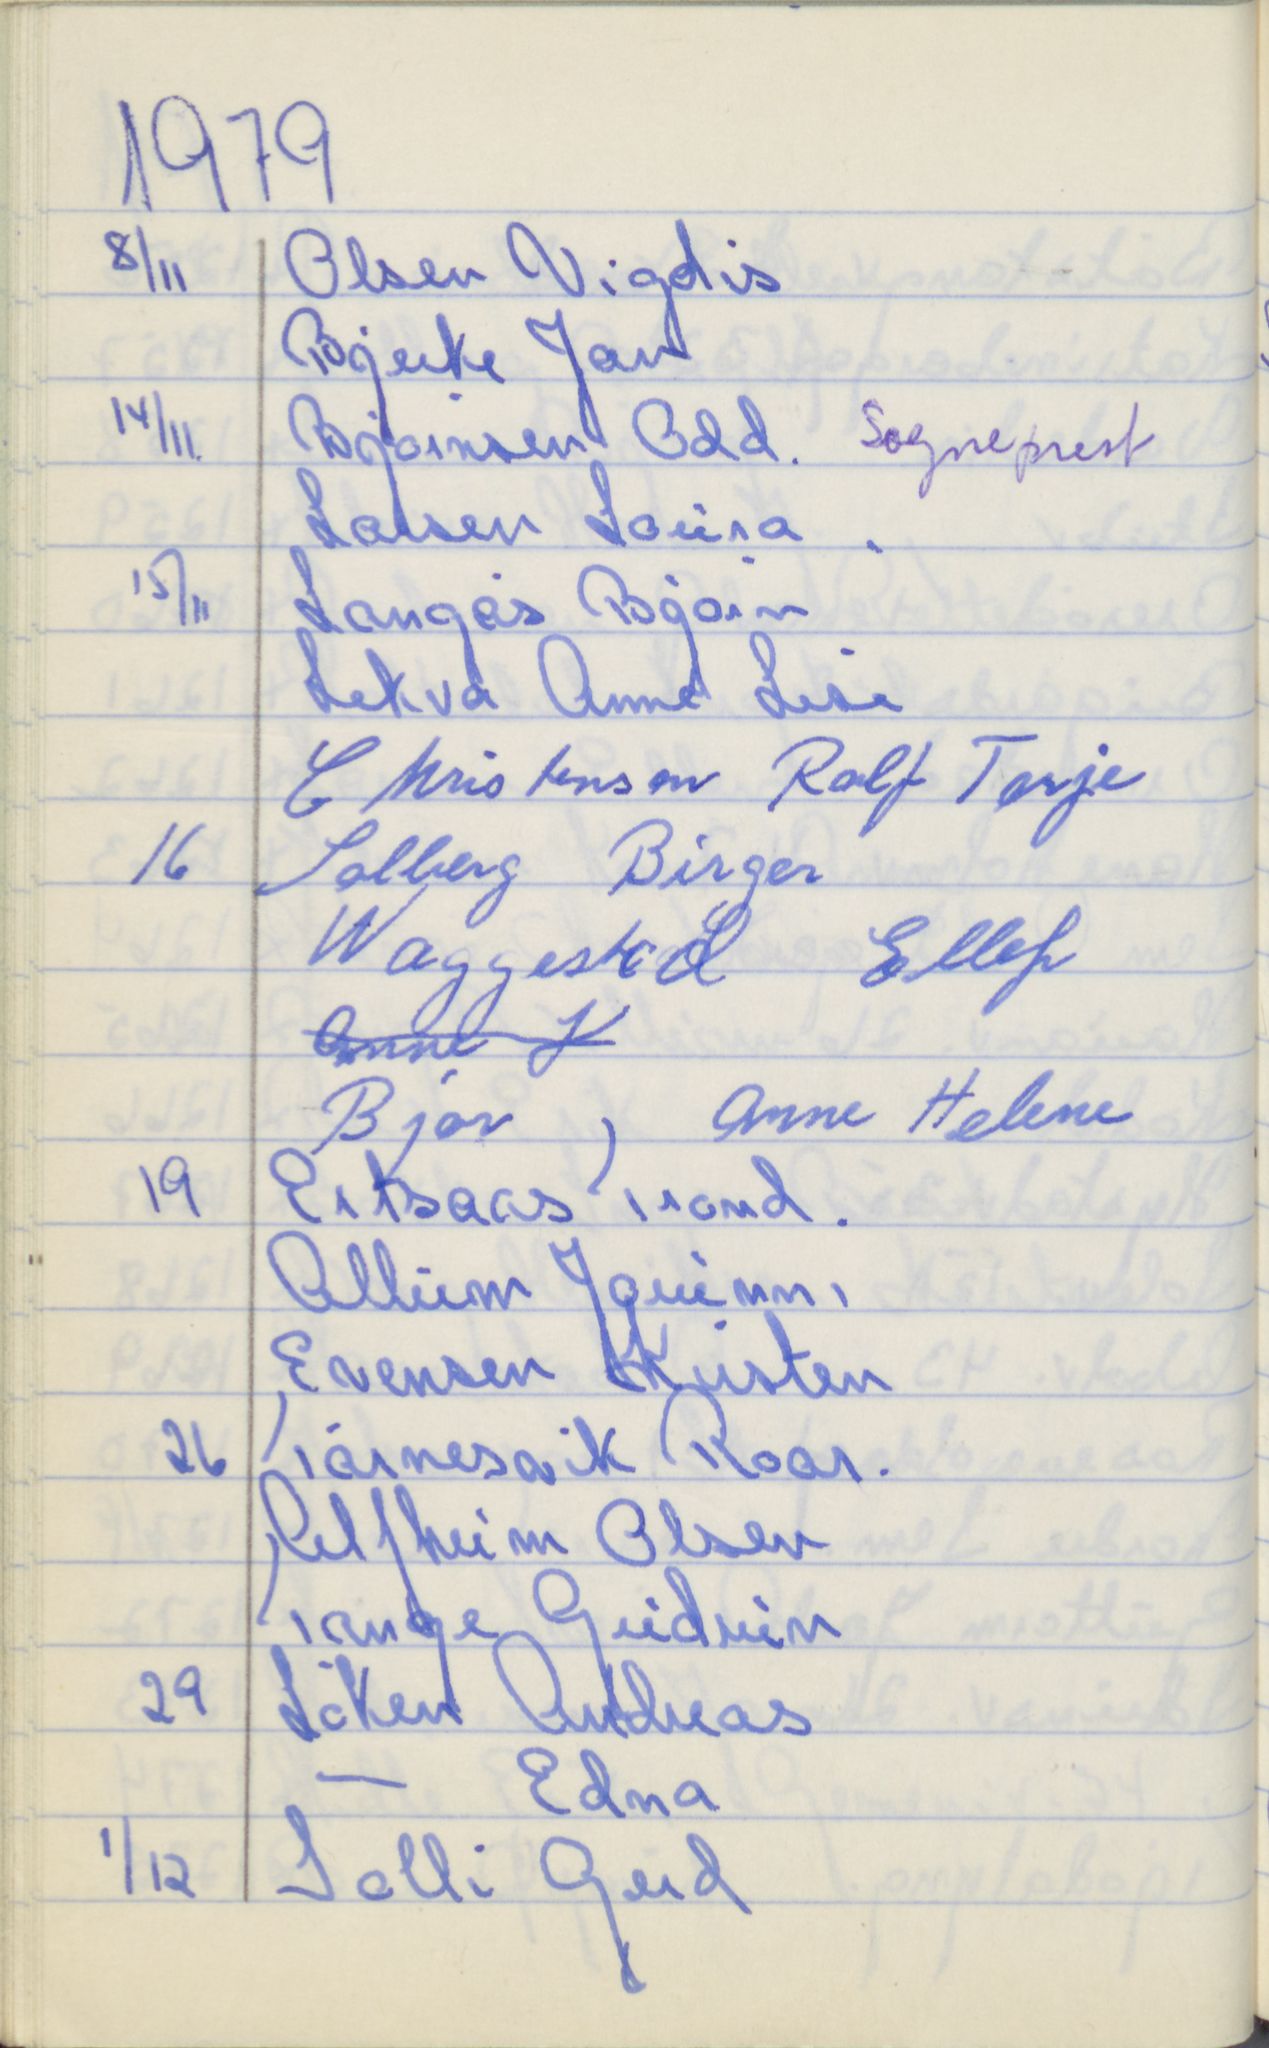 1979
8/11 Olsen Vigdis
Bjerke Jan
14/11. Bjørnsen Odd. Sogneprest
Larsen Laura.
15/11 Langås Bjørn
Lekva Anne Lise
Christensen Rolf Terje
16 Solberg Birger
Waggestad Ellef
Anne K
Bjor, Anne Helene
19 Eiksaas Trond.
Allum Jorunn,
Evensen Kirsten
26 Tårnesvik Roar.
Olsen
Tange Gudrun
29 Løken Andreas
— Edna
1/12 Solli Gerd